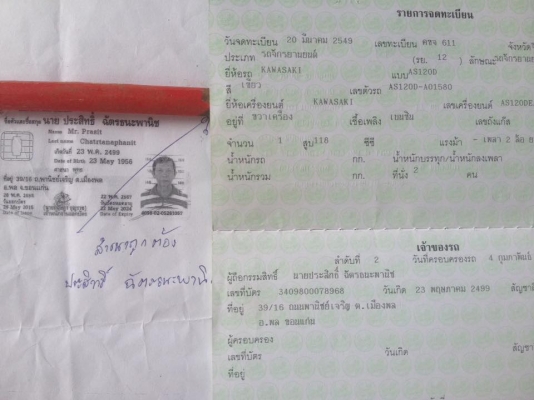 ชื่อตัวและชื่อสกุล นาย ประสิทธิ์ ฉัตรธนะพานิช
Name Mr. Prasit
Last name Chatrtanaphanit
เกิดวันที่ 23 พ.ค. 2499
Date of Birth 23 May 1956
ศาสนา พุทธ
ที่อยู่ 39/16 ถ.พาณิชย์เจริญ ต.เมืองพล
อ.พล จ.ขอนแก่น
Date of Issue
Date of Expiry
สำเนาถูกต้อง
ประสิทธิ์ ฉัตรธนะพานิ
รายการจดทะเบียน
วันจดทะเบียน 20 มีนาคม 2549 เลขทะเบียน คขจ 611 จังหวัด
ประเภท รถจักรยานยนต์ (รย. 12 ) ลักษณะรถจักรยาน
ยี่ห้อรถ KAWASAKI แบบ AS120D
สี เขียว เลขตัวรถ AS120D-A01580
ยี่ห้อเครื่องยนต์ KAWASAKI เลขเครื่องยนต์ AS120DE
อยู่ที่ ขวาเครื่อง เชื้อเพลิง เบนซิน เลขถังแก๊ส
จำนวน 1 สูบ 118 ซีซี แรงม้า - เพลา 2 ล้อ
น้ำหนักรถ กก. น้ำหนักบรรทุก/น้ำหนักลงเพลา
น้ำหนักรวม กก. ที่นั่ง 2 คน
เจ้าของรถ
ลำดับที่ 2 วันที่ครอบครองรถ 4 กุมภาพันธ์
ผู้ถือกรรมสิทธิ์ นายประสิทธิ์ ฉัตรธนะพานิช
เลขที่บัตร 3409800078968 วันเกิด 23 พฤษภาคม 2499 สัญชา
ที่อยู่ 39/16 ถนนพาณิชย์เจริญ ต.เมืองพล
อ.พล ขอนแก่น
ผู้ครอบครอง
เลขที่บัตร วันเกิด สัญชา
ที่อยู่